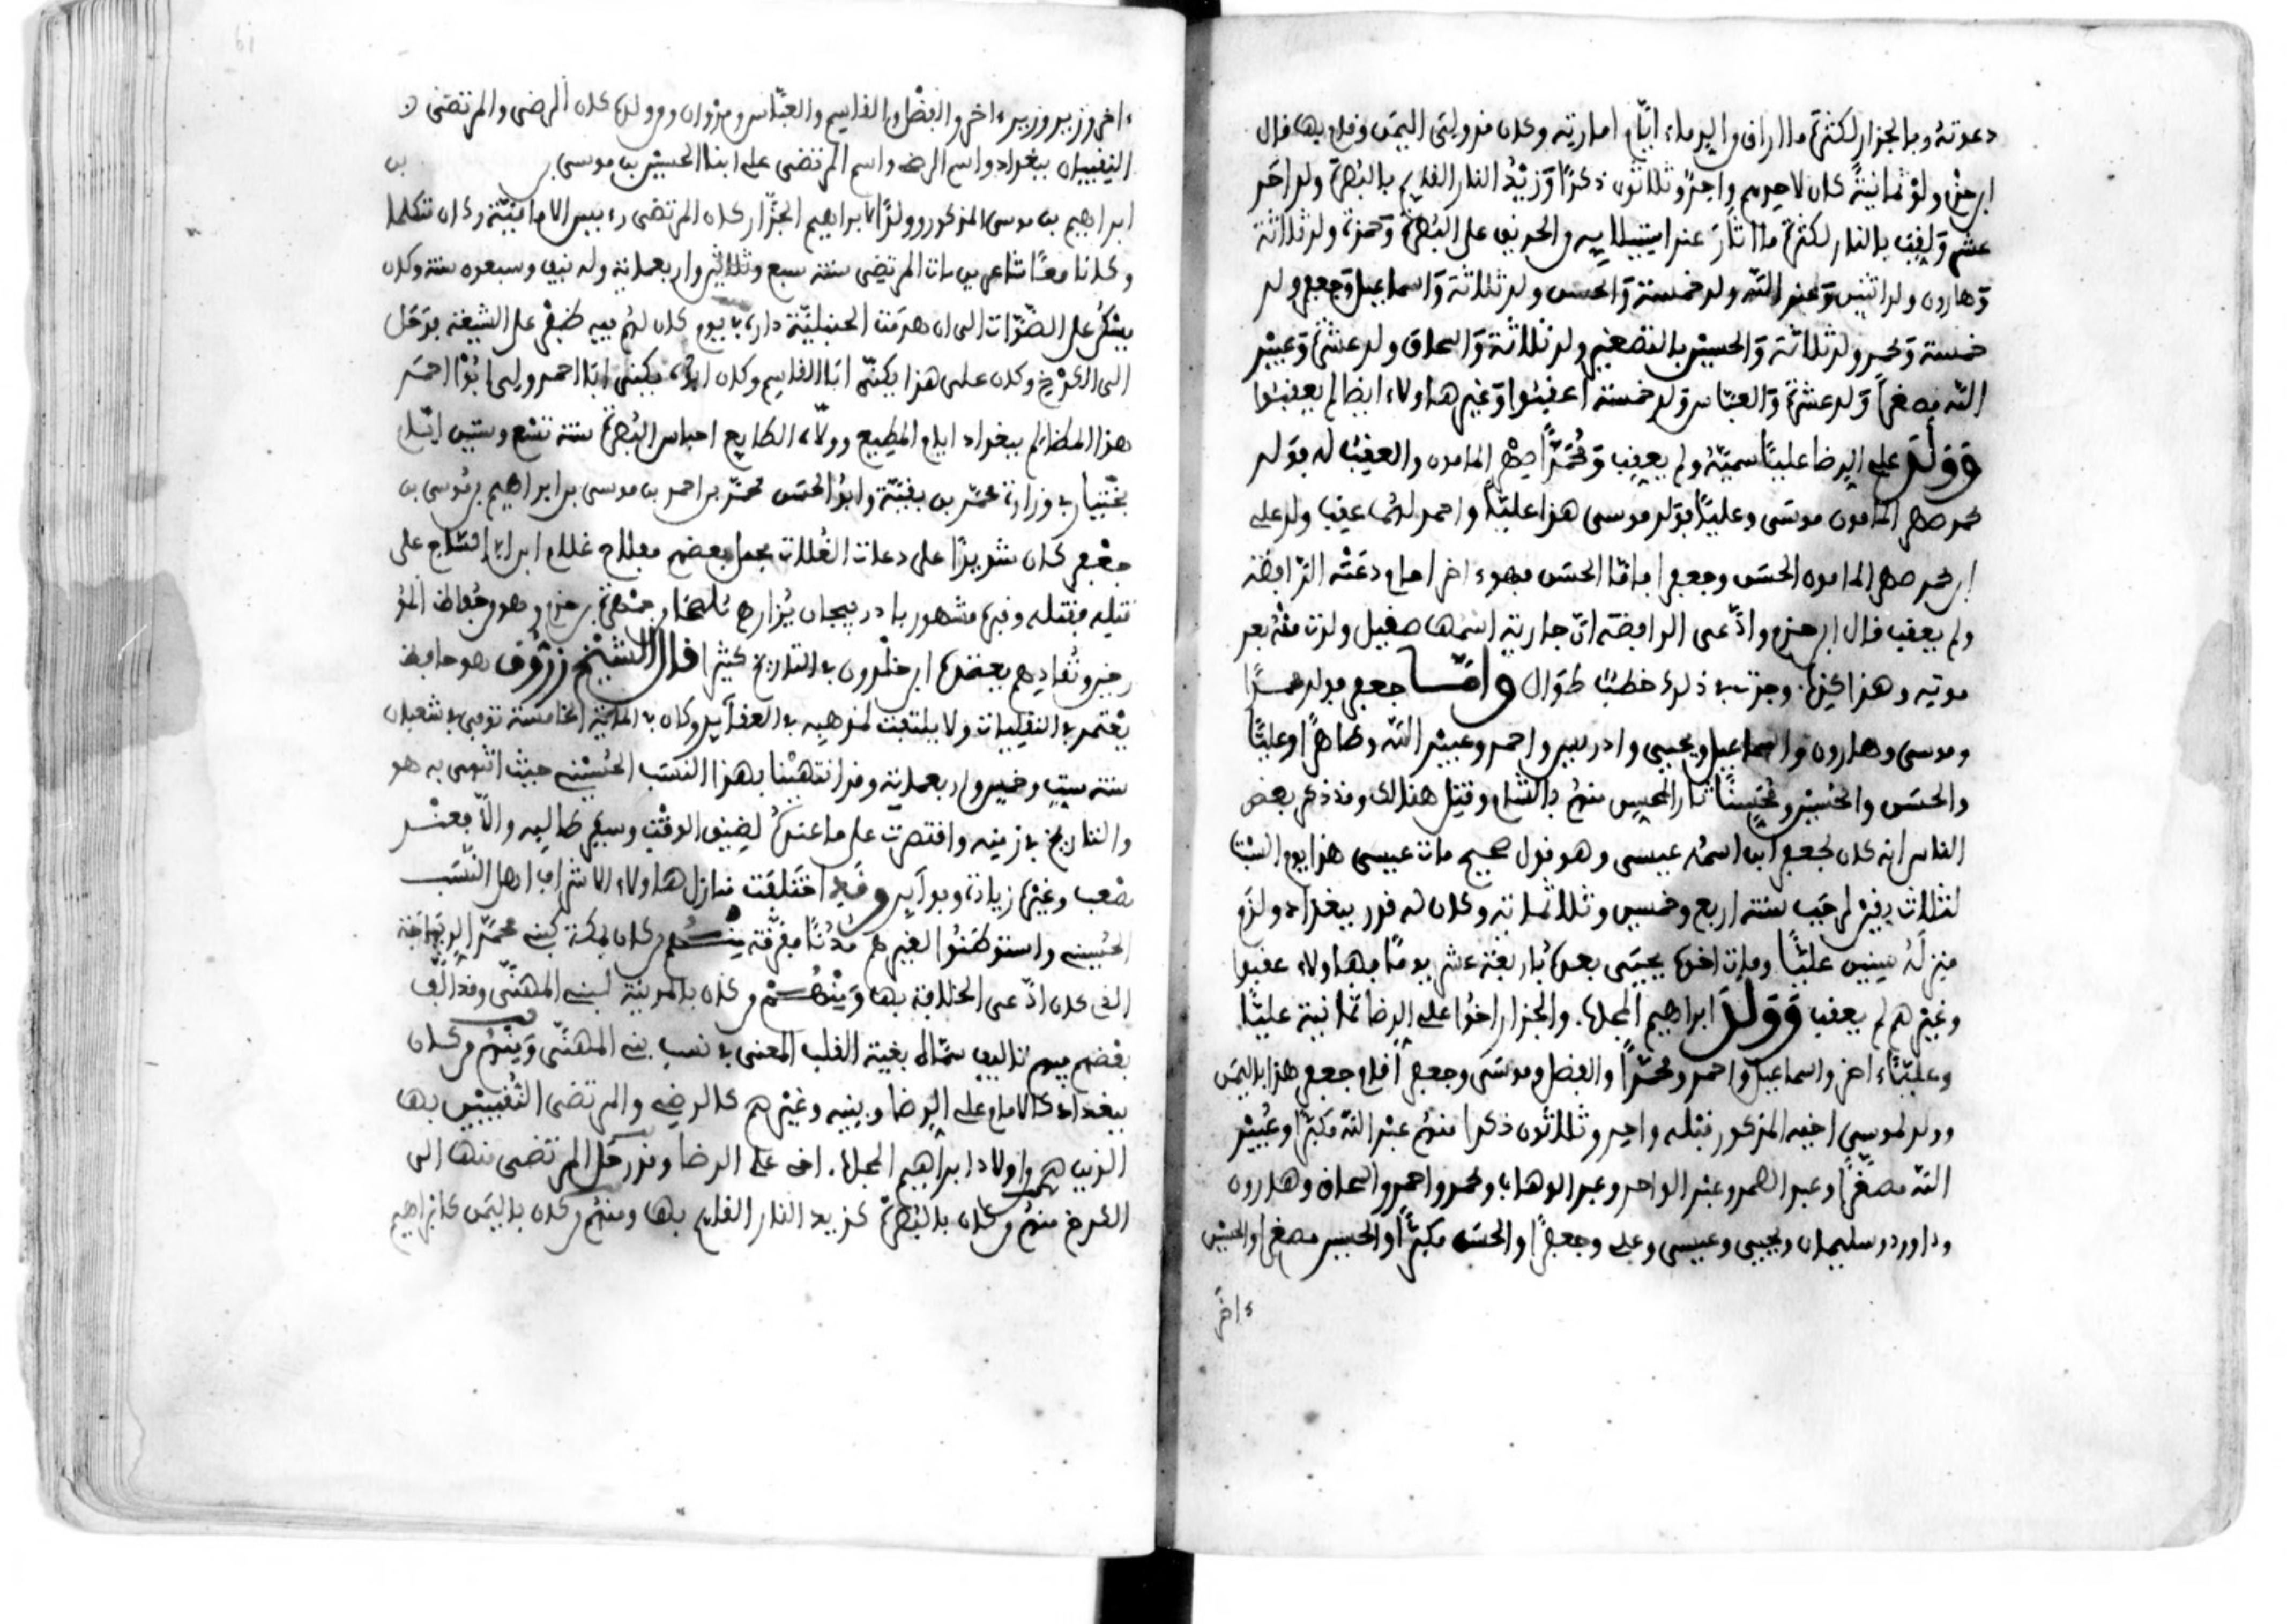 دعوته وبالجزار لكثرة ما اراق من الدماء ايام امارته وكان قد ولي اليمن وقام بها قال
ابن حزم ولد ثمانية كان لاحدهم واحد وثلاثون ذكرا وزيد النار القايم بالبصرة ولد احد
عشر ولقب بالنار لكثرة ما اثار عند استيلايه من الحريق على البصرة وحمزة ولد ثلاثة
وهارون ولد اثنين وعبد الله ولد خمسة والحسن ولد ثلاثة واسماعيل وجعفر ولد
خمسة ومحمد ولد ثلاثة والحسين بالتصغير ولد ثلاثة واسحاق ولد عشرة وعبيد
الله مصغرا ولد عشرة والعباس ولد خمسة اعقبوا وغير هاولاء ايضا لم يعقبوا
وولد على الرضا عليا سميه ولم يعقب ومحمدا صهر المامون والعقب له فولد
محمد صهر المامون موسى وعليا فولد موسى هذا عليا واحمد لهما عقب وولد على
ابن محمد صهر المامون الحسن وجعفر فاما الحسن فهو ءاخر امام دعته الرافضة
ولم يعقب قال ابن حزم وادعى الرافضة ان جارية اسمها صقيل ولدت منه بعد
موته وهذا كذب وجرت في ذلك خطب طوال واما جعفر فولد محمدا
وموسى وهارون واسماعيل ويحيى وادريس واحمد وعبيد الله وطاهرا وعليا
والحسن والحسين ومحسنا ثار المحسن منهم بالشام وقتل هنالك وقد ذكر بعض
الناس انه كان لجعفر ابن اسمه عيسى وهو قول صحيح مات عيسى هذا يوم السبت
لثلاث بقين لرجب سنة اربع وخمسين وثلاثماية وكان له قدر ببغداد ولزم
منزله سنين عليا ومات اخوه يحيى بعده باربعة عشر يوما فهاولاء عقبوا
وغيرهم لم يعقب وولد ابراهيم المجاب والجزار اخو على الرضا ثمانية عليا
وعليا ءاخر واسماعيل واحمد ومحمدا والفضل وموسى وجعفر اقام جعفر هذا باليمن
وولد لموسى اخيه المذكور قبله واحد وثلاثون ذكرا منهم عبد الله مكبرا وعبيد
الله مصغرا وعبد الصمد وعبد الواحد وعبد الوهاب ومحمد واحمد واسحاق وهارون
وداوود وسليمان ويحيى وعيسى وعلي وجعفرا والحسن مكبرا والحسين مصغرا والحسين
ءاخر
ءاخر وزيد وزيد ءاخر والفضل والقاسم والعباس ومروان ومن ولده كان الرضى والمرتضى
النقيبان ببغداد واسم الرضى واسم المرتضى على ابنا الحسين بن موسى بن
ابراهيم بن موسى المذكور وولد الابراهيم الجزار كان المرتضى رءيس الامامية وكان متكلما
وكانا معا شاعرين مات المرتضى سنة سبع وثلاثين واربعماية وله نيف وسبعون سنة وكان
يسكن على الصراة الى ان هدمت الحنبلية داره في يوم كان لهم فيه ظفر على الشيعة فرحل
الى الكرخ وكان على هذا يكنى ابا القاسم وكان ابوه يكنى ابا احمد وولي ابو احمد
هذا المظالم ببغداد ايام المطيع وولاه الطايع احباس البصرة سنة تسع وستين ايام
بختيار في وزارة محمد بن بقية وابو الحسن محمد بن احمد بن موسى بن ابراهيم بن موسى بن
جعفر كان شديدا على دعات الغلات فجعل بعضهم مفلاح غلام ابن ابي الساج على
قتله فقتله وقبره مشهور باذربيجان يزار هـ من جمهرة بن حزم وهو من حفاظ المؤ
رخين ونقادهم يعتمده ابن خلدون في التاريخ كثيرا قال الشيخ زروق هو حافظ
يعتمد في النقليات ولا يلتفت لمذهبه في العقايد وكان في الماية الخامسة توفي في شعبان
سنة ست وخمسين واربعماية وقد انتهينا بهذا النسب الحسيني حيث انتهى به هو
والتاريخ في زمنه واقتصرت على ما عنده لضيق الوقت وسفر طالبه والا فعند
مصعب وغيره زيادة وفوايد وقد اختلفت منازل هاولاء الاشراف اهل النسب
الحسيني واستوطنوا لغيرهم مدنا مفرقة منهم من كان بمكة كبني محمد الديباجة
الذي كان ادعى الخلافة بها ومنهم من كان بالمدينة لبني المهنى وقد الف
بعضهم فيهم تاليف سماه بغية القلب المعنى في نسب بني المهنى ومنهم من كان
ببغداد كالامام على الرضا وبنيه وغيرهم كالرضي والمرتضى النقيبين بها
الذين هم من اولاد ابراهيم المجاب اخي على الرضا وقد رحل المرتضى منها الى
الكرخ منهم من كان بالبصرة كزيد النار القايم بها ومنهم من كان باليمن كابراهيم